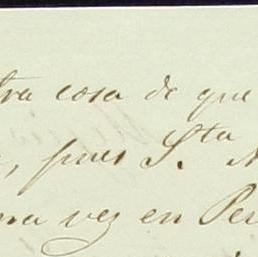 tra cosa de que
, pues S.ta
na vez en Per